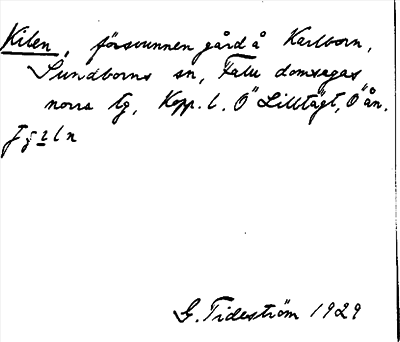 Kilen, försvunnen gård å Karlborn,
Sundborns sn, Falu domsagas
norra tg, Kopp. l. Ö Lilltägt, Ö ån.
G. Tideström 1929